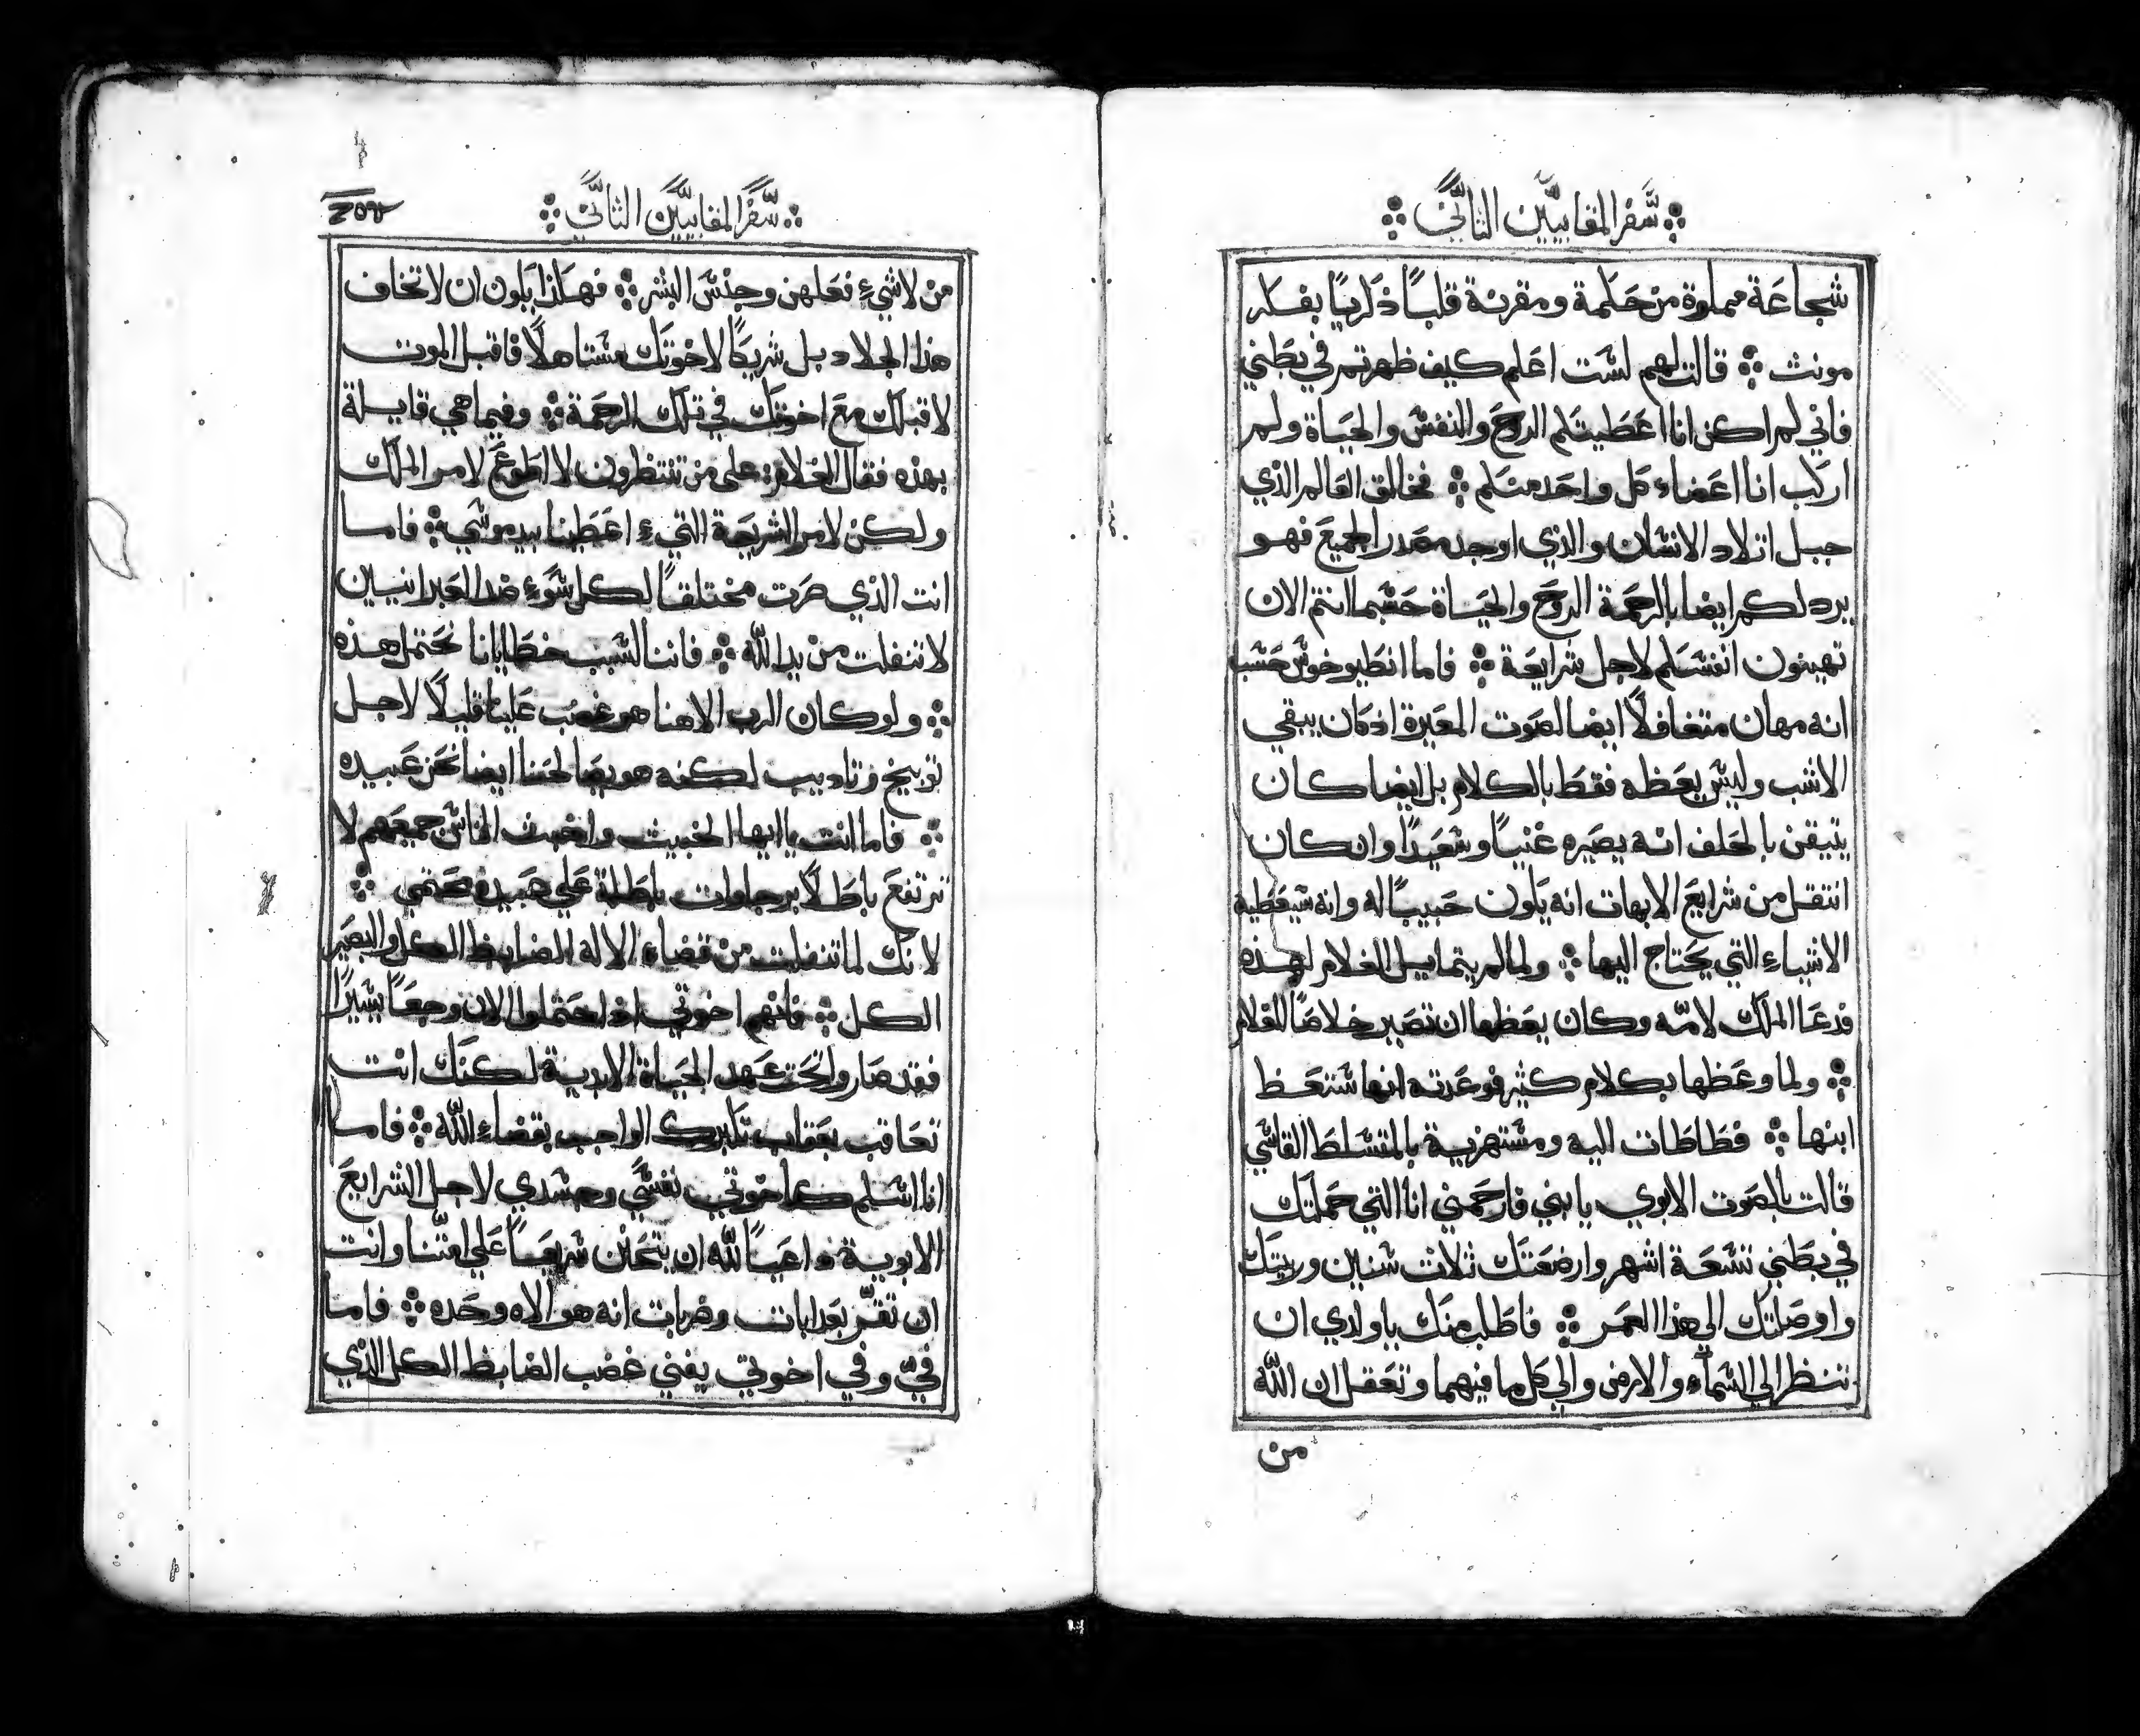 سفر المقابيين الثاني
شجاعة مملوة من حكمة ومقرنة قلبًا ذكريًا بفكر
مونث قالت لهم لست اعلم كيف ظهرتم في بطني
فاني لم اكن انا اعطيتكم الروح والنفس والحياة ولم
اركب انا اعضاء كل واحد منكم فخالق العالم الذي
جبل اتلاد الانسان والذي اوجد مصدر الجميع فهو
يرد لكم ايضا بالرحمة الروح والحياة حسبما انتم الان
تهينون انفسكم لاجل شرايعة فاما انطيوخوس حسب
انه مهان متغافلًا ايضا لصوت المعيرة اذ كان يبقي
الاشب وليس يعظه فقط بالكلام بل ايضا كان
يتيقن بالحلف انه يصيره غنيًا وسعيدًا وان كان
انتقل من شرايع الابهات انه يكون حبيبًا له وانه سيعطية
الاشياء التي يحتاج اليها ولما لم يتمايل الغلام لهذه
فدعا الملك لامّه وكان يعظها ان تصير خلاصًا للغلام
ولما وعظها بكلام كثير فوعدته انها ستعظ
ابنها فطاطات اليه ومستهزية بالمتسلط القاسي
قالت بالصوت الابوي يا بني فارحمني انا التي حملتك
في بطني تسعة اشهر وارضعتك ثلاث سنين وربيتك
واوصلتك الي هذا العمر فاطلب منك يا ولدي ان
تنظر الي السماء والارض والي كل ما فيهما وتعقل ان الله
من
سفر المقابيين الثاني
من لا شيء فعلهن وجنس البشر فهكذا يكون ان لا تخاف
هذا الجلاد بل شريكًا لاخوتك مستاهلًا فاقبل الموت
لاقبلك مع اخوتك في تلك الرحمة وفيما هي قايلة
بهذه فقال الغلام على من تنتظرون لا اطوع لامر الملك
ولكن لامر الشريعة التي اعطينا بيد موسي فاما
انت الذي صرت مختلقًا لكل سوء ضد العبرانيين
لا تنفلت من يد الله فاننا لسبب خطايانا نحتمل هذه
ولو كان الرب الاهنا هو غضب علينا قليلًا لاجل
توبيخ وتاديب لكنه هو يصالحنا ايضا نحن عبيده
فاما انت يا ايها الخبيث واخبث الناس جميعهم لا
ترتفع باطلًا برجاوات باطلة علي عبيده محتمي
لانك لما تنفلت من قضاء الاله الضابط الكل والبصير
الكل فانهم اخوتي اذ احتملوا الان وجعًا يسيرًا
فقد صاروا تحت عهد الحياة الابدية لكنك انت
تعاقب بعقاب تكبرك الواجب بقضاء الله فاما
انا اسلم كاخوتي نفسي وجسدي لاجل الشرايع
الابوية داعيًا لله ان يتحنن سريعًا علي امتنا وانت
ان تقرّ بعدابات وضربات انه هو الاه وحده فاما
فيّ وفي اخوتي يفني غضب الضابط الكل الذي